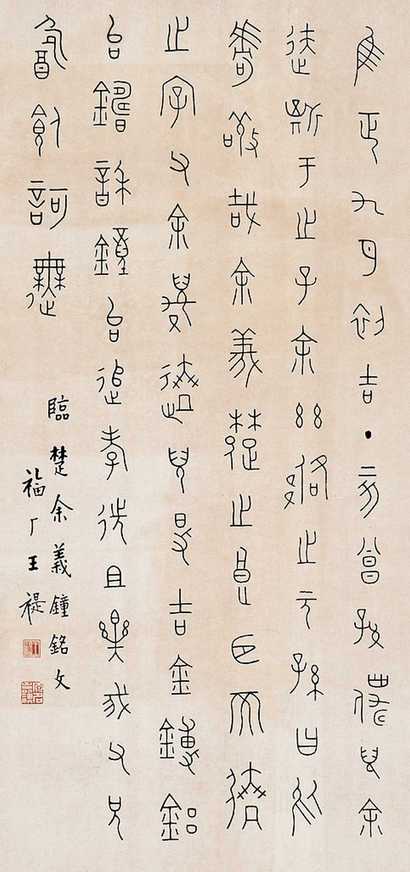 隹正九月初吉丁亥曾孫僕兒余
迭斯于之子余茲佫之元孫曰於
嘑敬哉余義楚之良臣而
之字父余兒得吉金鎛鋁
台鑄龢鐘台追孝先且樂我父兄
飲飤訶舞
臨楚余義鐘銘文
福厂王褆